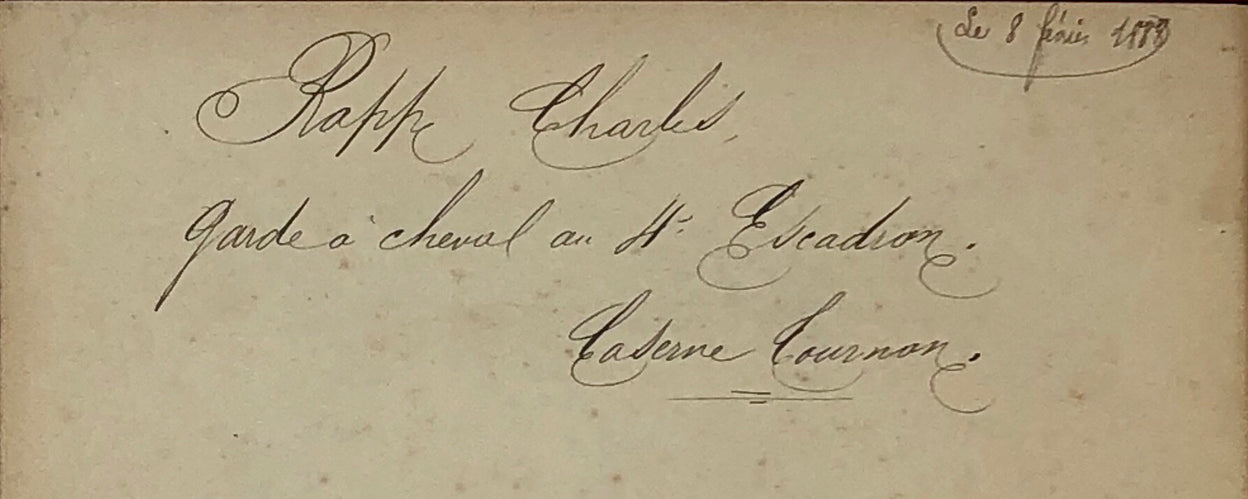 Le 8 févier
Rapp Charles,
Garde à cheval au 4e Escadron.
Caserne Tournon.